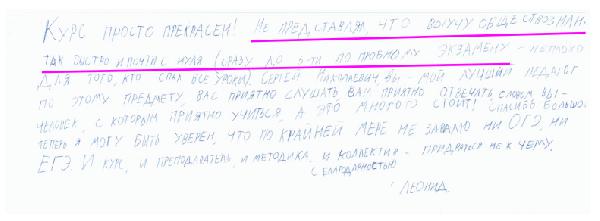 Курс просто прекрасен! Не представлял что выучу обществознание
так быстро и почти с нуля (сразу до 5-ти по любому экзамену - неплохо
для того, кто спал все уроки) Сергей Николаевич вы - мой лучший педагог
по этому предмету, вас приятно слушать вам приятно отвечать словом вы -
человек, с которым приятно учиться, а это многого стоит! Спасибо большое.
Теперь я могу быть уверен, что по крайней мере не завалю ни ОГЭ, ни
ЕГЭ. И курс, и преподаватель, и методика, и коллектив - придраться не к чему.
с благодарностью
Леонид